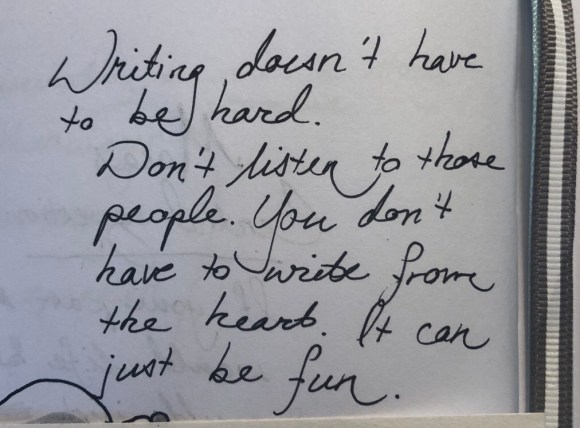 Writing doesn't have
to be hard.
Don't listen to those
people. You don't
have to write from
the heart. It can
just be fun.